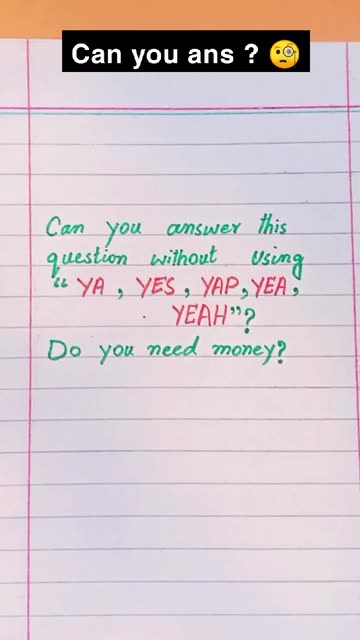 Can you ans ? 🧐
Can you answer this
question without using
“ YA , YES , YAP, YEA,
YEAH”?
Do you need money?